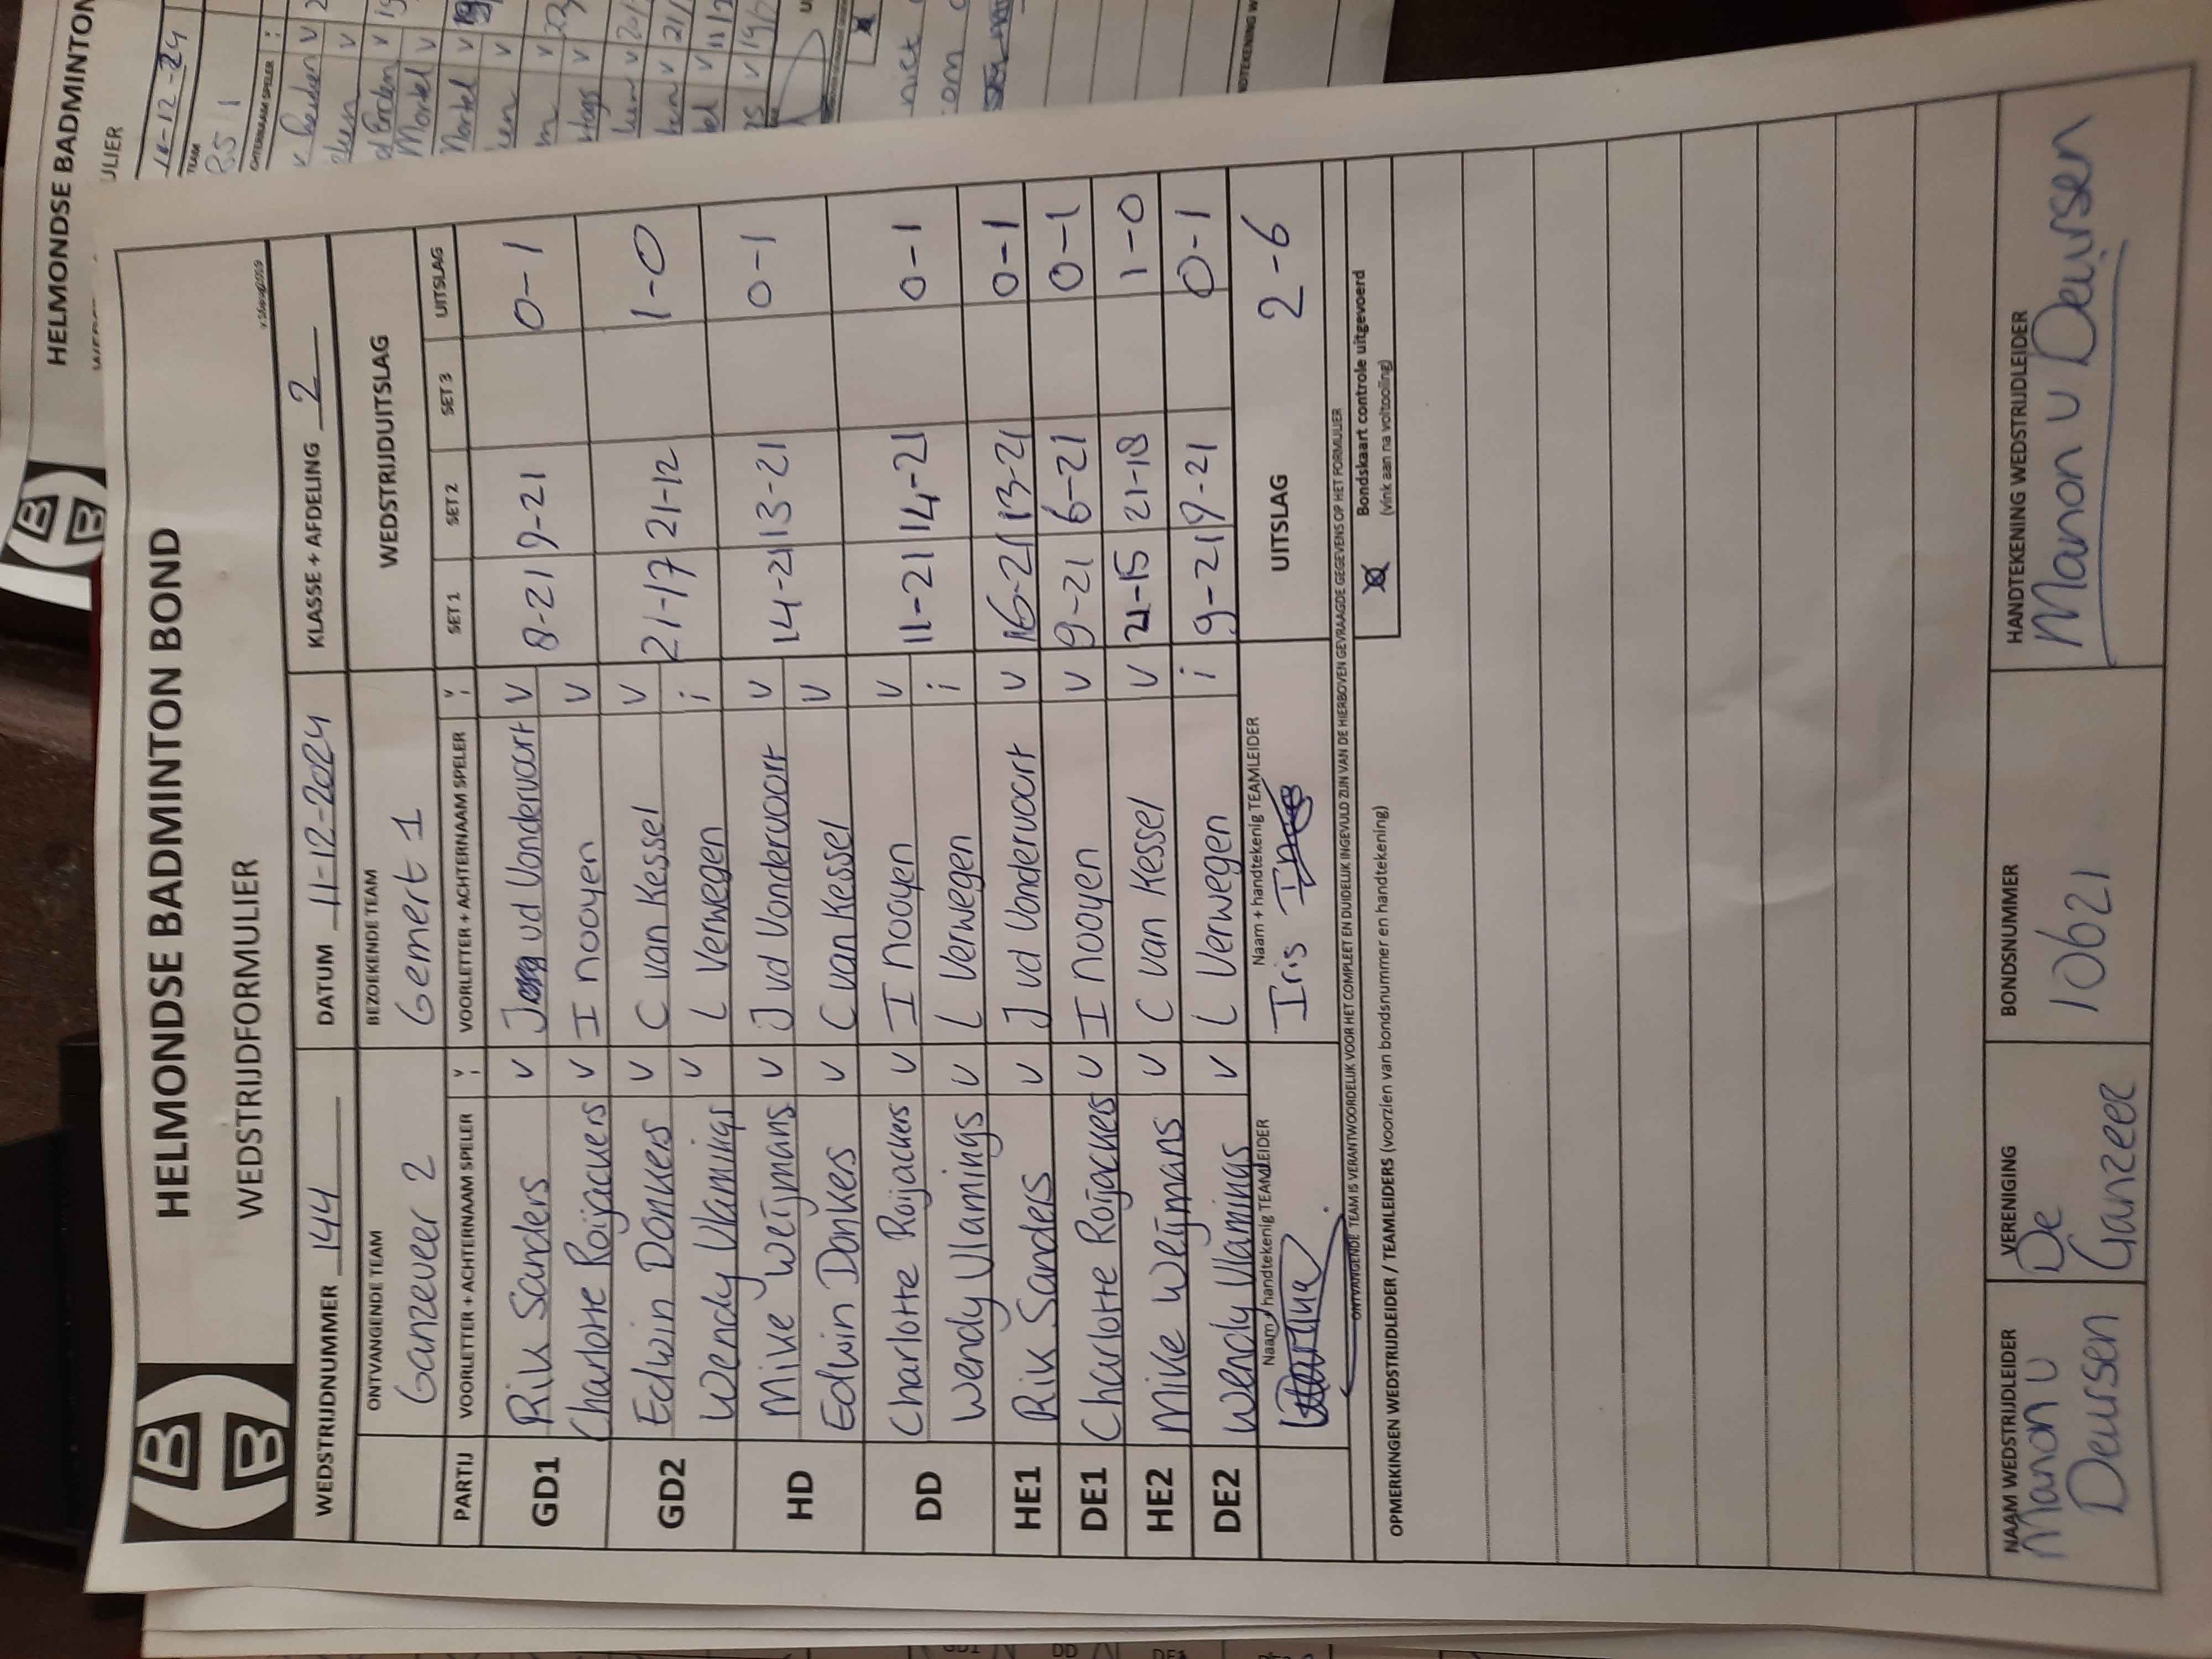 HELMONDSE BADMINTON BOND
WEDSTRIJDFORMULIER
WEDSTRIJDNUMMER 144 DATUM 11-12-2024 KLASSE + AFDELING 2
ONTVANGENDE TEAM BEZOEKENDE TEAM WEDSTRIJDUITSLAG
Ganzeveer 2 Gemert 1
PARTIJ VOORLETTER + ACHTERNAAM SPELER V i VOORLETTER + ACHTERNAAM SPELER V i SET 1 SET 2 SET 3 UITSLAG
GD1 Rik Sanders v J vd Vondervoort v 8-21 9-21 0-1
Charlotte Roijackers v I nooyen v
GD2 Edwin Donkers v C van Kessel v 21-17 21-12 1-0
Wendy Vlamings v L Verwegen i
HD Mike Weijmans v J vd Vondervoort v 14-21 13-21 0-1
Edwin Donkers v C van Kessel v
DD Charlotte Roijackers v I nooyen v 11-21 14-21 0-1
Wendy Vlamings v L Verwegen i
HE1 Rik Sanders v J vd Vondervoort v 16-21 13-21 0-1
DE1 Charlotte Roijackers v I nooyen v 9-21 6-21 0-1
HE2 Mike Weijmans v C van Kessel v 21-15 21-18 1-0
DE2 Wendy Vlamings v L Verwegen i 9-21 9-21 0-1
Naam + handtekenig TEAMLEIDER Naam + handtekenig TEAMLEIDER UITSLAG 2-6
Iris
ONTVANGENDE TEAM IS VERANTWOORDELIJK VOOR HET COMPLEET EN DUIDELIJK INGEVULD ZIJN VAN DE HIERBOVEN GEVRAAGDE GEGEVENS OP HET FORMULIER
Bondskaart controle uitgevoerd
(vink aan na voltooiing)
OPMERKINGEN WEDSTRIJDLEIDER / TEAMLEIDERS (voorzien van bondsnummer en handtekening)
NAAM WEDSTRIJDLEIDER VERENIGING BONDSNUMMER HANDTEKENING WEDSTRIJDLEIDER
Manon v De 10621 Manon v Deursen
Deursen Ganzeveer
HELMONDSE BADMINTON
ULIER
TEAM